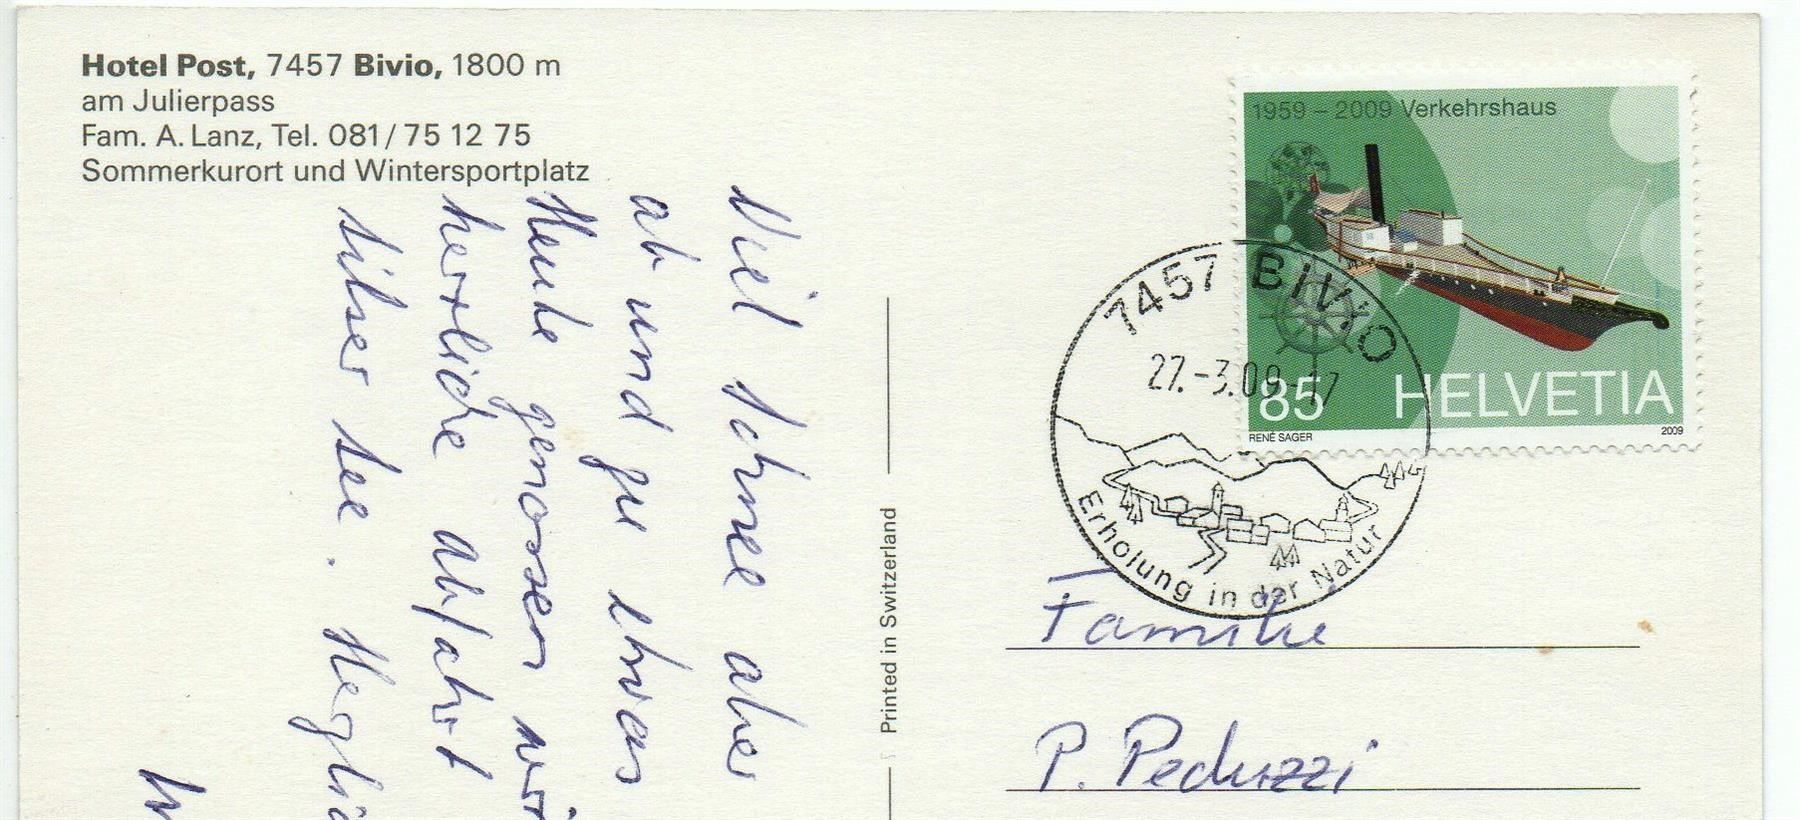 Hotel Post, 7457 Bivio, 1800 m
am Julierpass
Fam. A. Lanz, Tel. 081/75 12 75
Sommerkurort und Wintersportplatz
Viel Schnee aber
ab und zu etwas
Heute genossen wi
herrliche Abfahrt
Silser See. Herzlic
Printed in Switzerland
1959 – 2009 Verkehrshaus
85 HELVETIA
RENÉ SAGER 2009
7457 BIVIO
27.-3.09-17
Erholung in der Natur
Familie
P. Peduzzi